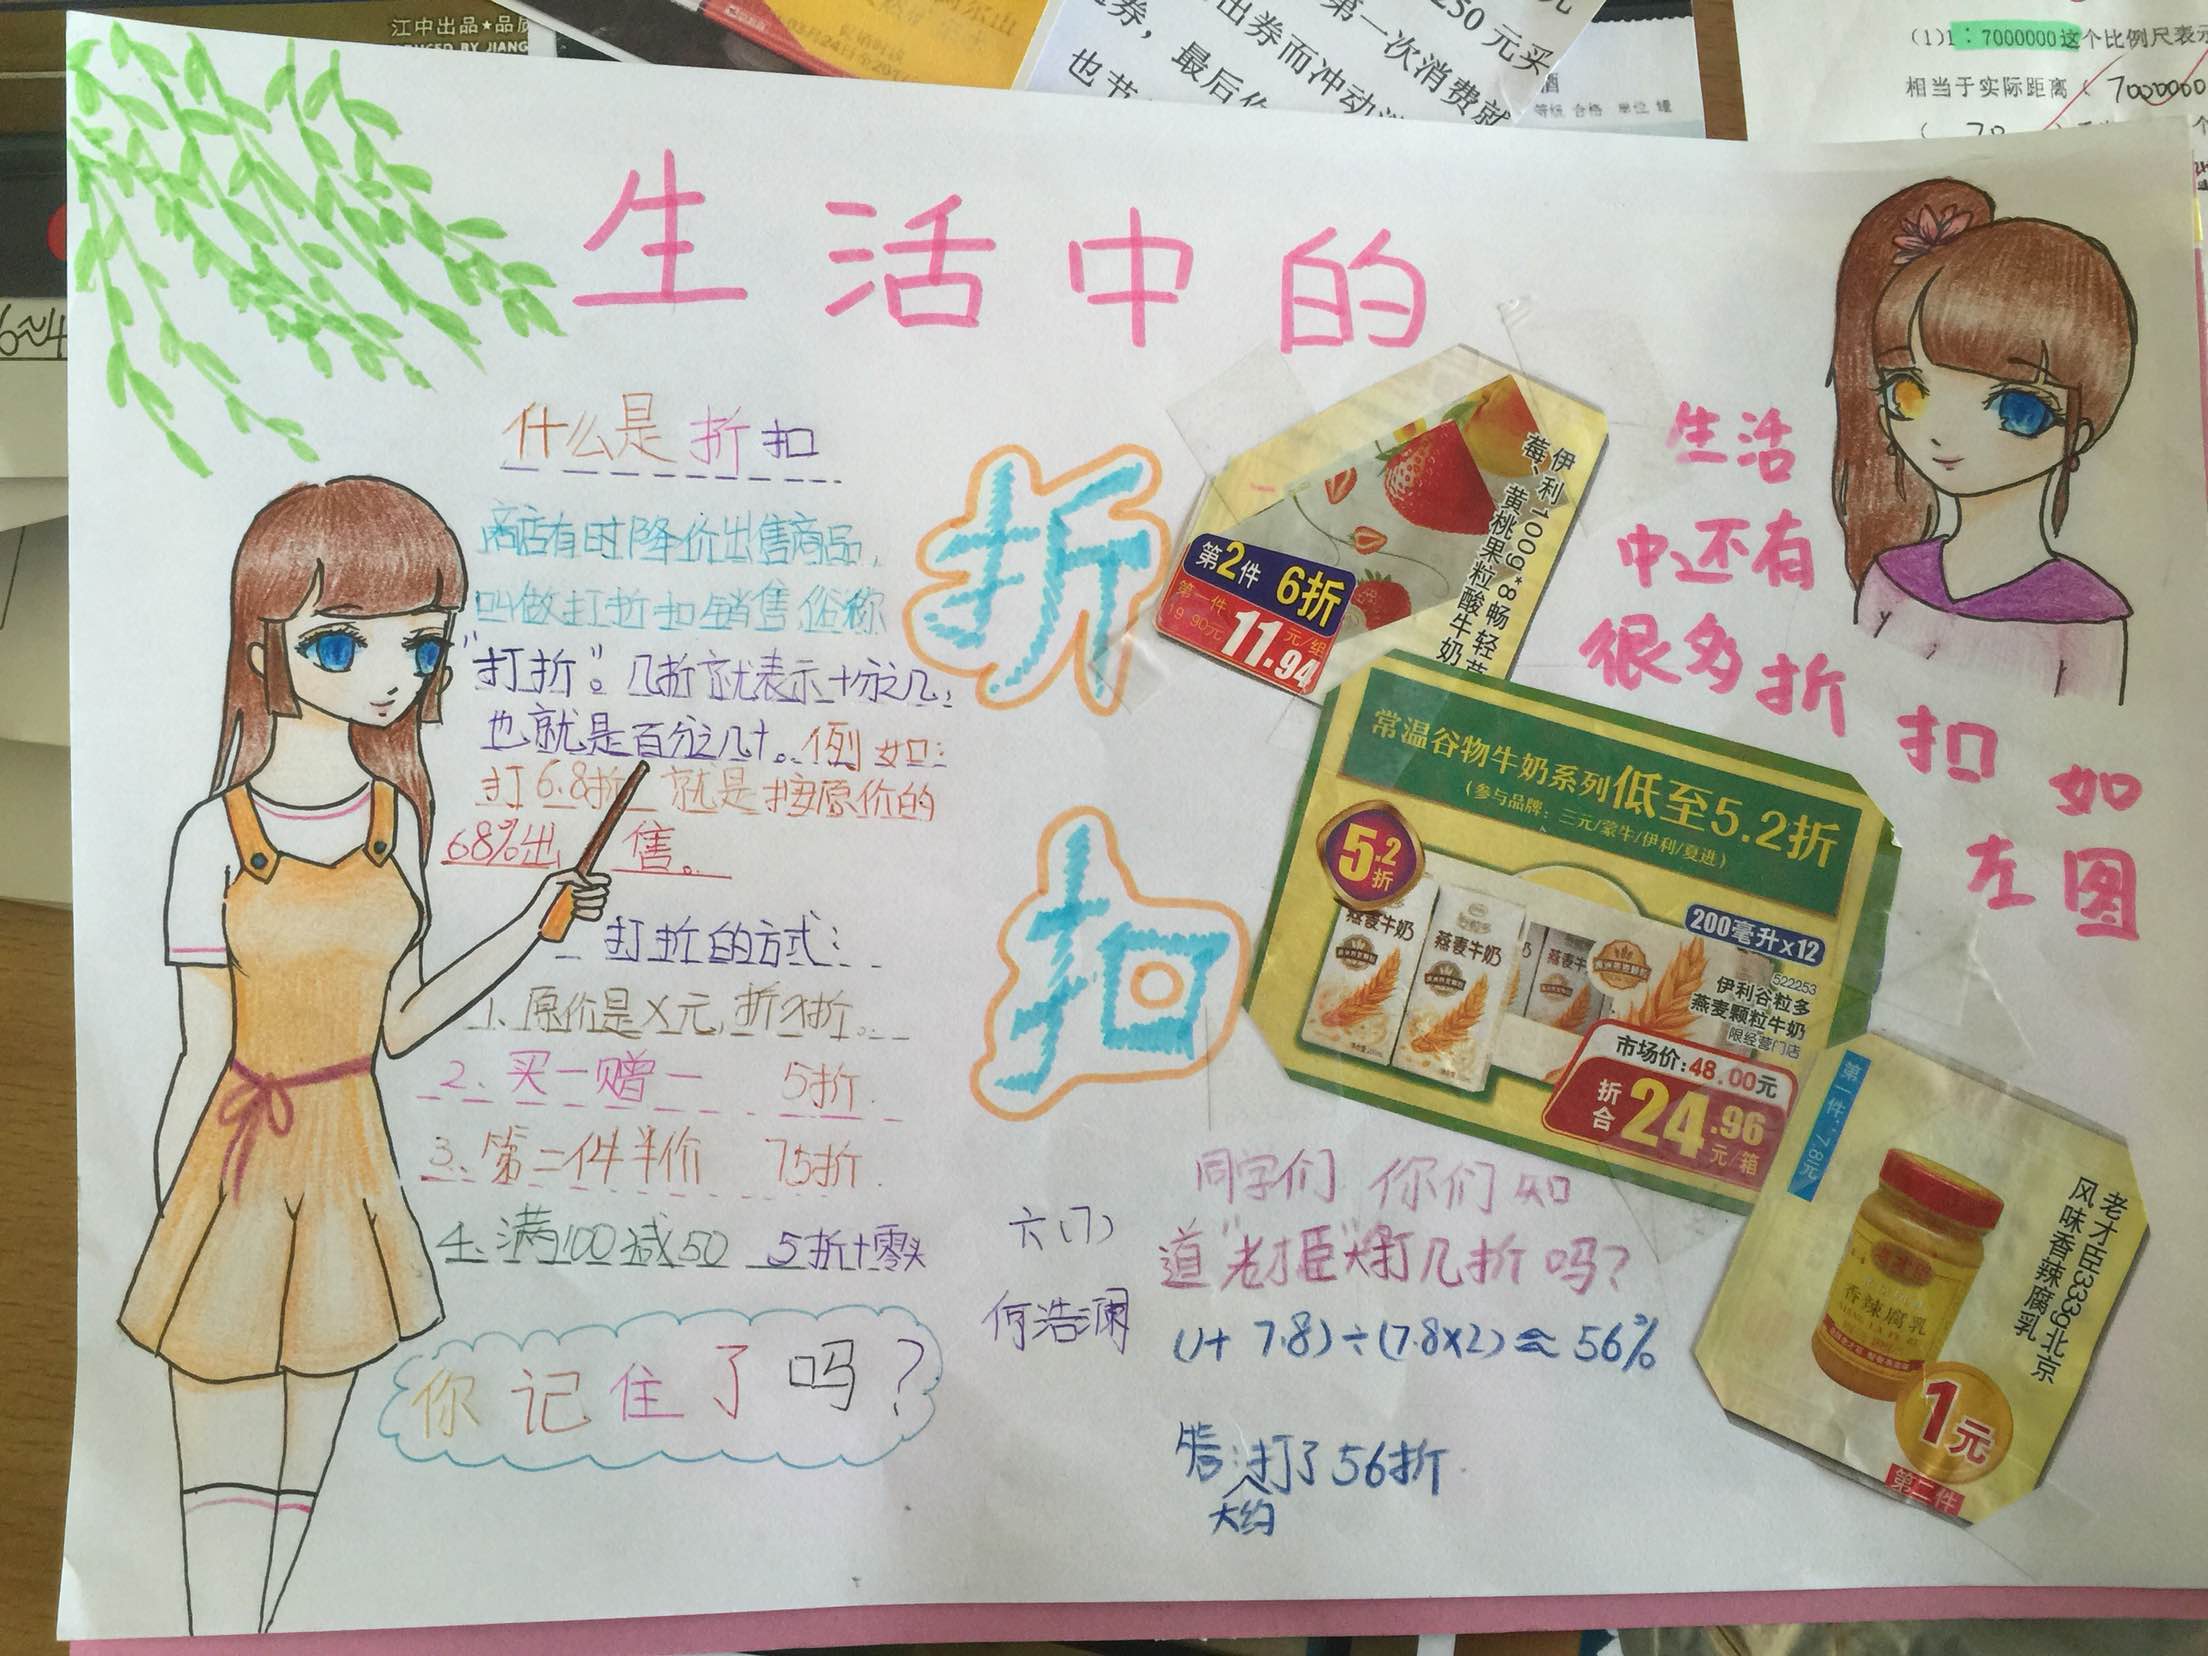 江中出品★品质
250元买
第一次消费就
出券而冲动
券，最后
也节
(1)1：7000000这个比例尺表示
相当于实际距离（7000000
生活中的
折扣
什么是折扣
商店有时降价出售商品，
叫做打折扣销售，俗称
“打折”。几折就表示十分之几，
也就是百分之几十。例如：
打6.8折 就是按原价的
68%出售。
打折的方式：
1、原价是X元，折X折。
2、买一赠一 5折.
3、第二件半价 75折.
4、满100减50 5折+零头
你记住了吗？
六(7)
何浩澜
伊利100g*8畅轻草
莓、黄桃果粒酸牛奶
第2件 6折
第一件
19.90元
11.94元/组
生活
中还有
很多折扣如
左图
常温谷物牛奶系列低至5.2折
（参与品牌：三元/蒙牛/伊利/夏进）
5.2折
燕麦牛奶
燕麦牛奶
燕麦牛
200毫升x12
522253
伊利谷粒多
燕麦颗粒牛奶
限经营门店
市场价:48.00元
折合24.96元/箱
第一件:7.8元
老才臣333g北京
风味香辣腐乳
香辣腐乳
1元
第二件
同学们 你们知
道“老才臣”大约打几折吗？
(1+7.8)÷(7.8×2)≈56%
答：大约打了56折.